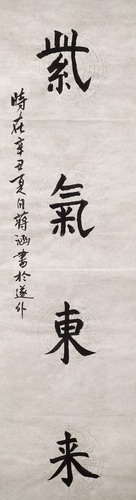 紫氣東来
時在辛丑夏月蔣涵書於遂外